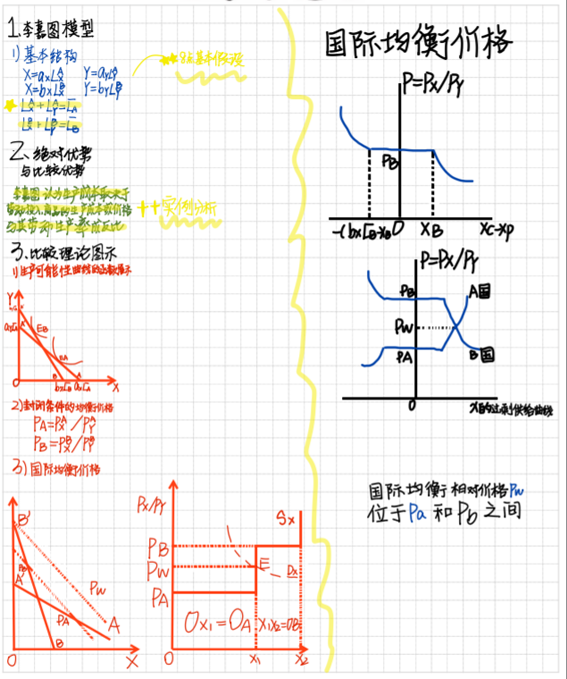 1.李嘉图模型
1) 基本结构
X=axLXA Y=ayLYA
X=bxLXB Y=byLYB
LXA+LYA=LA
LXB+LYB=LB
8点基本假设
2、绝对优势
与比较优势
李嘉图认为生产成本取决于
劳动投入,商品的生产成本及价格
与其劳动生产率成反比
++实例分析
3.比较理论图示
1)生产可能性曲线的函数展示
Y
EB
EA
B
A
O
bxLB
axLA
X
2)封闭条件的均衡价格
PA=PXA/PYA
PB=PXB/PYB
3)国际均衡价格
B'
A'
Pw
PA
A
B
O
X
Px/Py
Sx
PB
Pw
E
Dx
PA
Ox1=OA
X1X2=OB
O
X1
X2
国际均衡价格
P=Px/Py
PB
-(bxLB-XB
O
XB
Xc-Xp
P=Px/Py
PB
A国
Pw
PA
B国
O
X的过剩供给曲线
国际均衡相对价格Pw
位于Pa和Pb之间